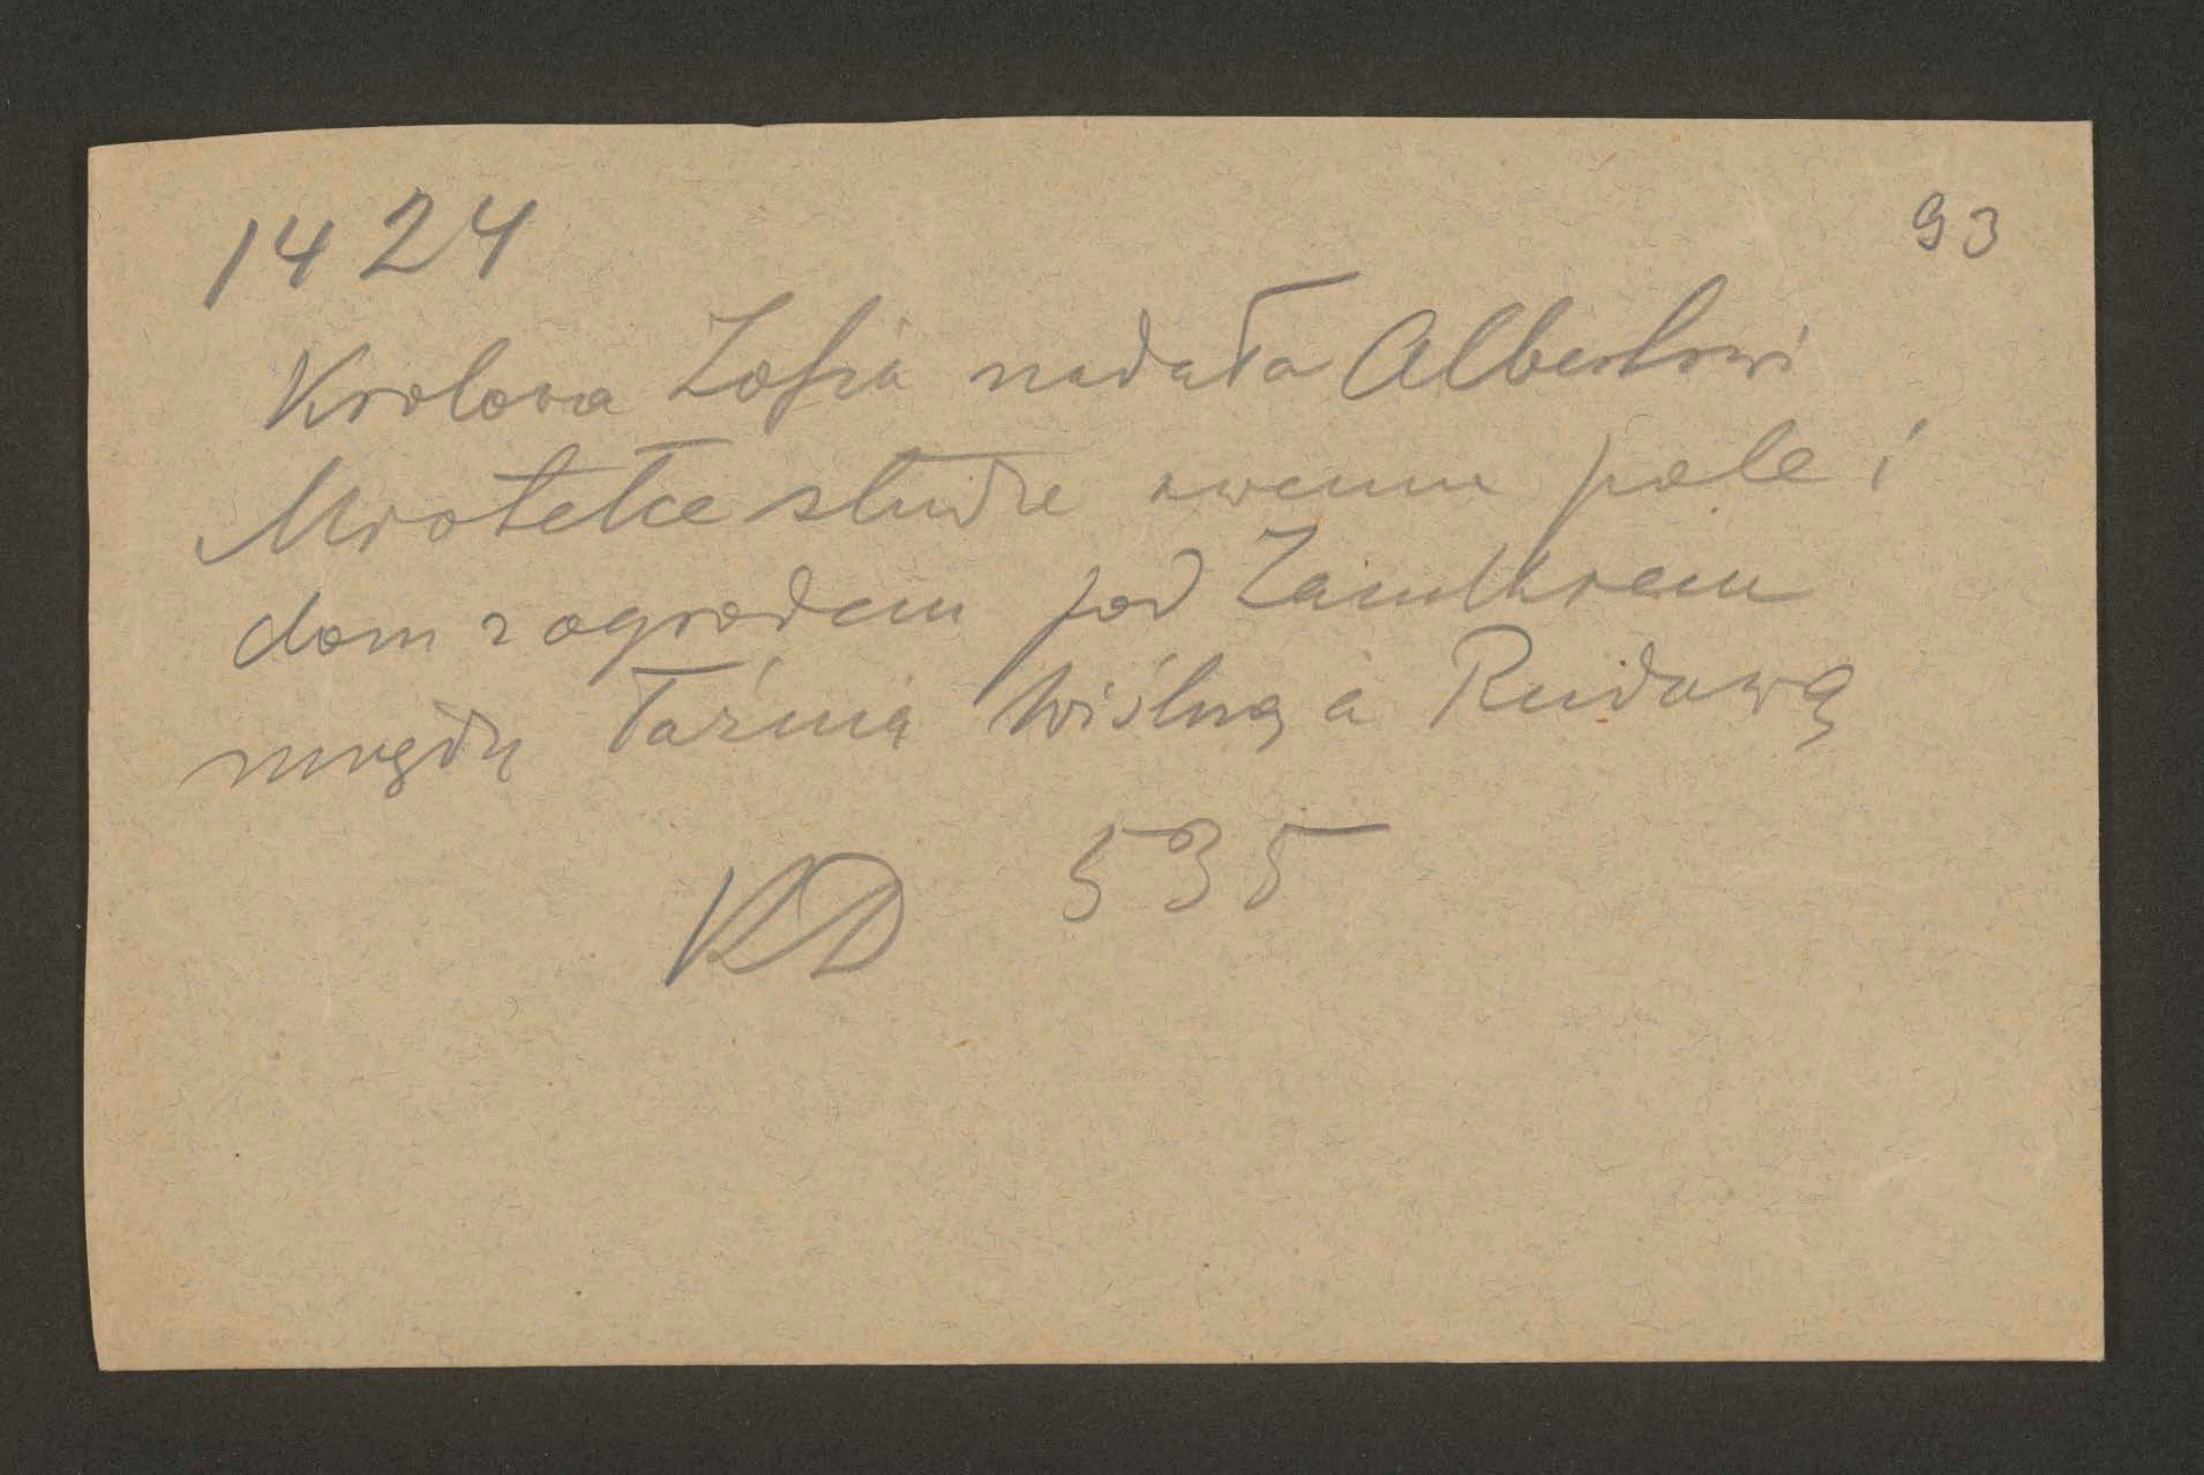 1424
93
Krolowa Zofia nadała Albertowi
słudze swemu pole i
dom z ogrodem pod Zamkiem
między łaźnią Wiślną a Rudawą
KD 535